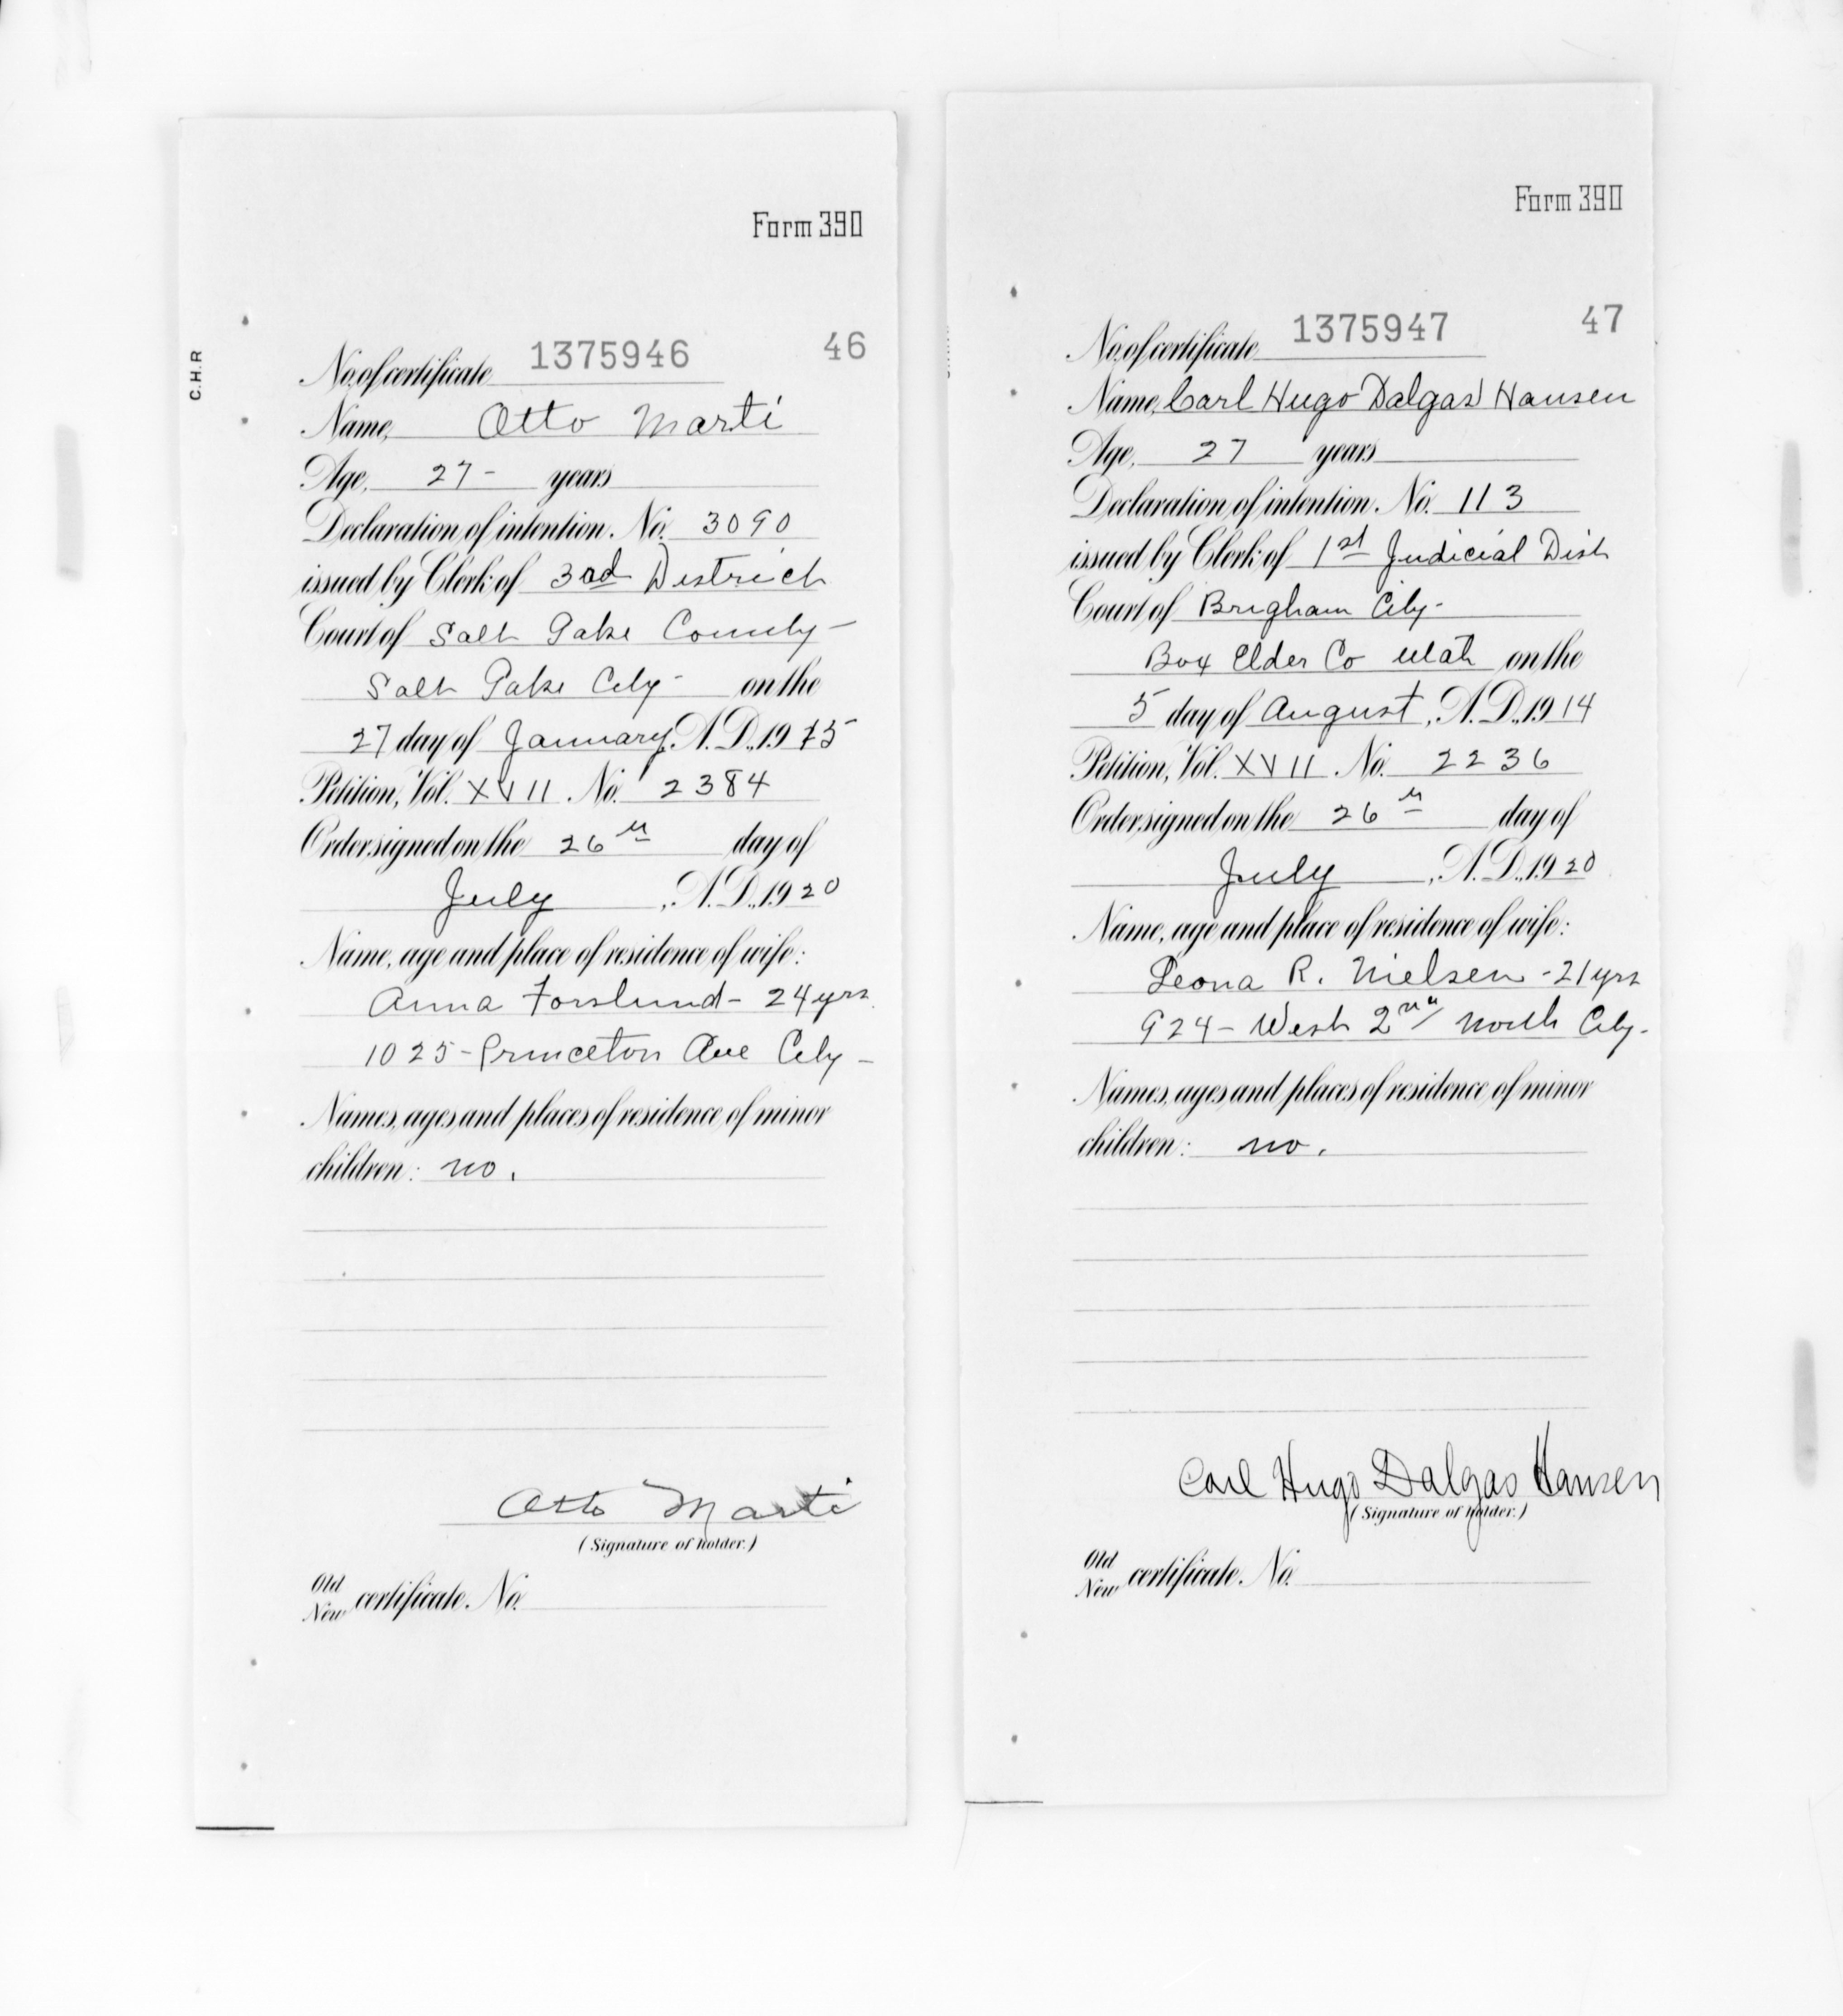 Form 390
C.H.R
No. of certificate 1375946 46
Name, Otto Marti
Age, 27 - years
Declaration of intention, No. 3090
issued by Clerk of 3rd District
Court of Salt Lake County -
Salt Lake City - on the
27 day of January, A.D., 1915
Petition, Vol. XVII No. 2384
Order signed on the 26th day of
July, A.D., 1920
Name, age and place of residence of wife:
Anna Forslund - 24 yrs.
1025 - Princeton Ave City -
Names, ages and places of residence of minor
children: no.
Otto Marti
(Signature of holder.)
Old
New certificate, No.
Form 390
No. of certificate 1375947 47
Name, Carl Hugo Dalgas Hansen
Age, 27 years
Declaration of intention, No. 113
issued by Clerk of 1st Judicial Dist
Court of Brigham City -
Box Elder Co Utah on the
5 day of August, A.D., 1914
Petition, Vol. XVII No. 2236
Order signed on the 26th day of
July, A.D., 1920
Name, age and place of residence of wife:
Leona R. Nielsen - 21 yrs
924 - West 2nd North City -
Names, ages and places of residence of minor
children: no.
Carl Hugo Dalgas Hansen
(Signature of holder.)
Old
New certificate, No.